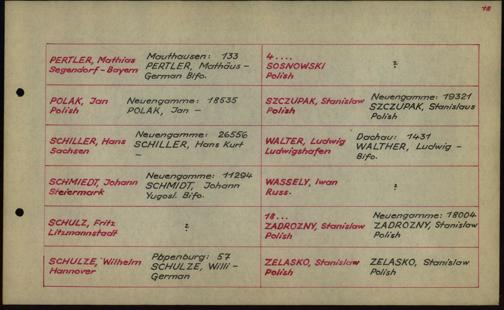 18
PERTLER, Mathias
Segendorf-Bayern
Mauthausen: 133
PERTLER, Mathäus -
German Bifo.
4....
SOSNOWSKI
Polish
?
POLAK, Jan
Polish
Neuengamme: 18535
POLAK, Jan -
SZCZUPAK, Stanislaw
Polish
Neuengamme: 19321
SZCZUPAK, Stanislaus
Polish
SCHILLER, Hans
Sachsen
Neuengamme: 26556
SCHILLER, Hans Kurt
-
WALTER, Ludwig
Ludwigshafen
Dachau: 1431
WALTHER, Ludwig -
Bifo.
SCHMIEDT, Johann
Steiermark
Neuengamme: 11294
SCHMIDT, Johann
Yugosl. Bifo.
WASSELY, Iwan
Russ.
?
SCHULZ, Fritz
Litzmannstadt
?
18...
ZADROZNY, Stanislaw
Polish
Neuengamme: 18004
ZADROZNY, Stanislaw
Polish
SCHULZE, Wilhelm
Hannover
Papenburg: 57
SCHULZE, Willi -
German
ZELASKO, Stanislaw
Polish
ZELASKO, Stanislaw
Polish